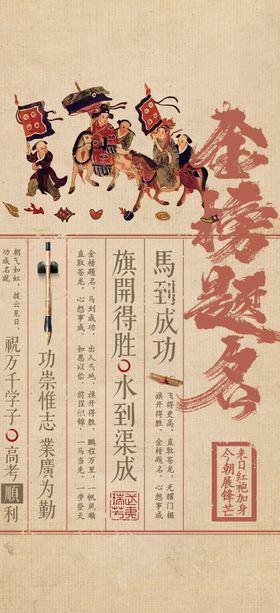 金榜题名
来日红袍加身
今朝展锋芒
馬到成功
飞得更高，直取苍龙，光耀门楣
旗开得胜，金榜题名，心想事成
旗開得勝 水到渠成
金榜题名，马到成功，出人头地，旗开得胜，鹏程万里，一帆风顺
直取苍龙，心想事成，如愿以偿，前程似锦，一马当先，一步登天
功崇惟志 業廣为勤
朝气如虹，拨云见日，
功成名就
祝万千学子 高考順利